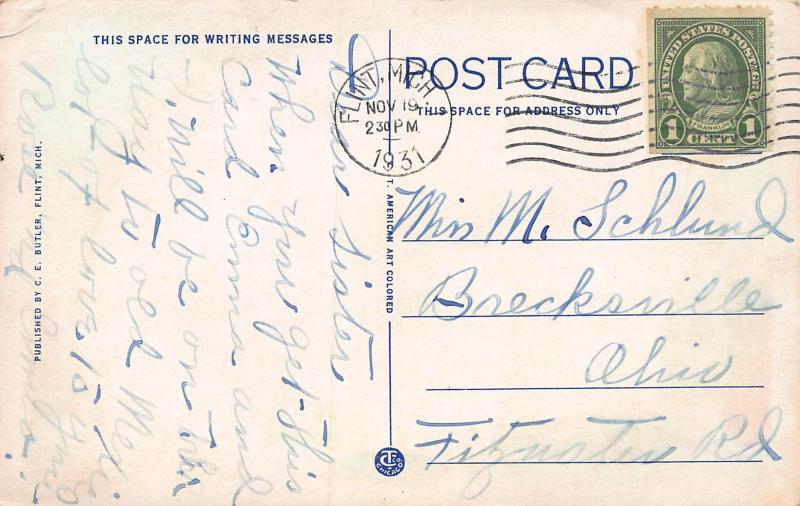 THIS SPACE FOR WRITING MESSAGES
POST CARD
THIS SPACE FOR ADDRESS ONLY
FLINT, MICH
NOV 19
2 30 PM
1931
UNITED STATES POSTAGE
FRANKLIN
1 CENT 1
Dear Sister
When you get this
Card Emma and
I, will be on the
way to old Mexi
lots of love to you
Rose and Emma.
Miss M. Schlund
Brecksville
Ohio
Fitzwater Rd
PUBLISHED BY C. E. BUTLER, FLINT, MICH.
T. AMERICAN ART COLORED
CHICAGO